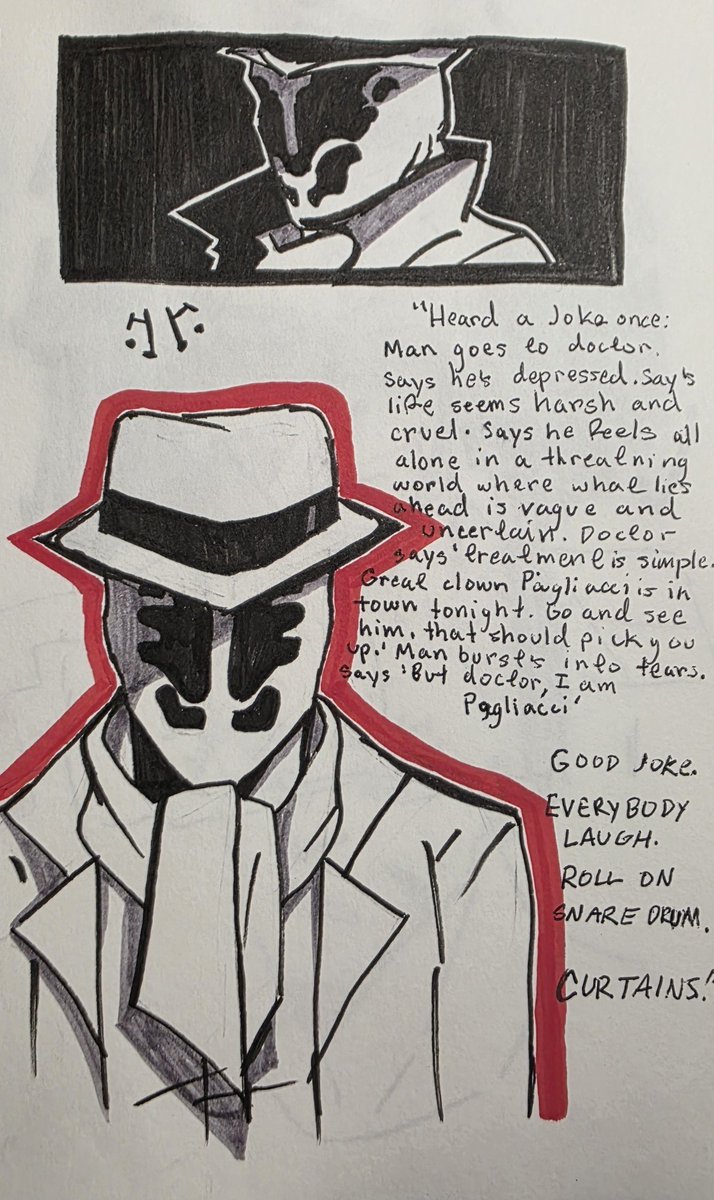 "Heard a Joke once:
Man goes to doctor.
Says he's depressed. Say's
life seems harsh and
cruel. Says he feels all
alone in a threatning
world where what lies
ahead is vague and
uncertain. Doctor
says 'treatment is simple.
Great clown Pagliacci is in
town tonight. Go and see
him. that should pick you
up.' Man bursts into tears.
Says 'But doctor, I am
Pagliacci'
GOOD JOKE.
EVERYBODY
LAUGH.
ROLL ON
SNARE DRUM.
CURTAINS."